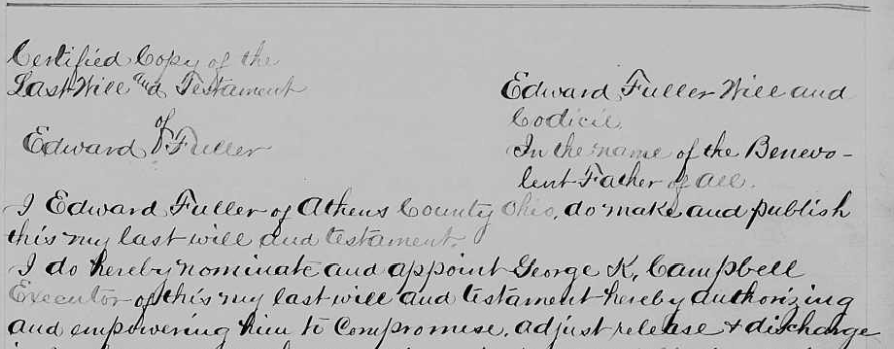 Certified Copy of the
Last Will and Testament
of
Edward Fuller
Edward Fuller Will and
Codicil
In the name of the Benevo-
lent Father of all.
I Edward Fuller of Athens County Ohio, do make and publish
this my last will and testament.
I do hereby nominate and appoint George K. Campbell
Executor of this my last will and testament hereby authorizing
and empowering him to compromise, adjust release & discharge